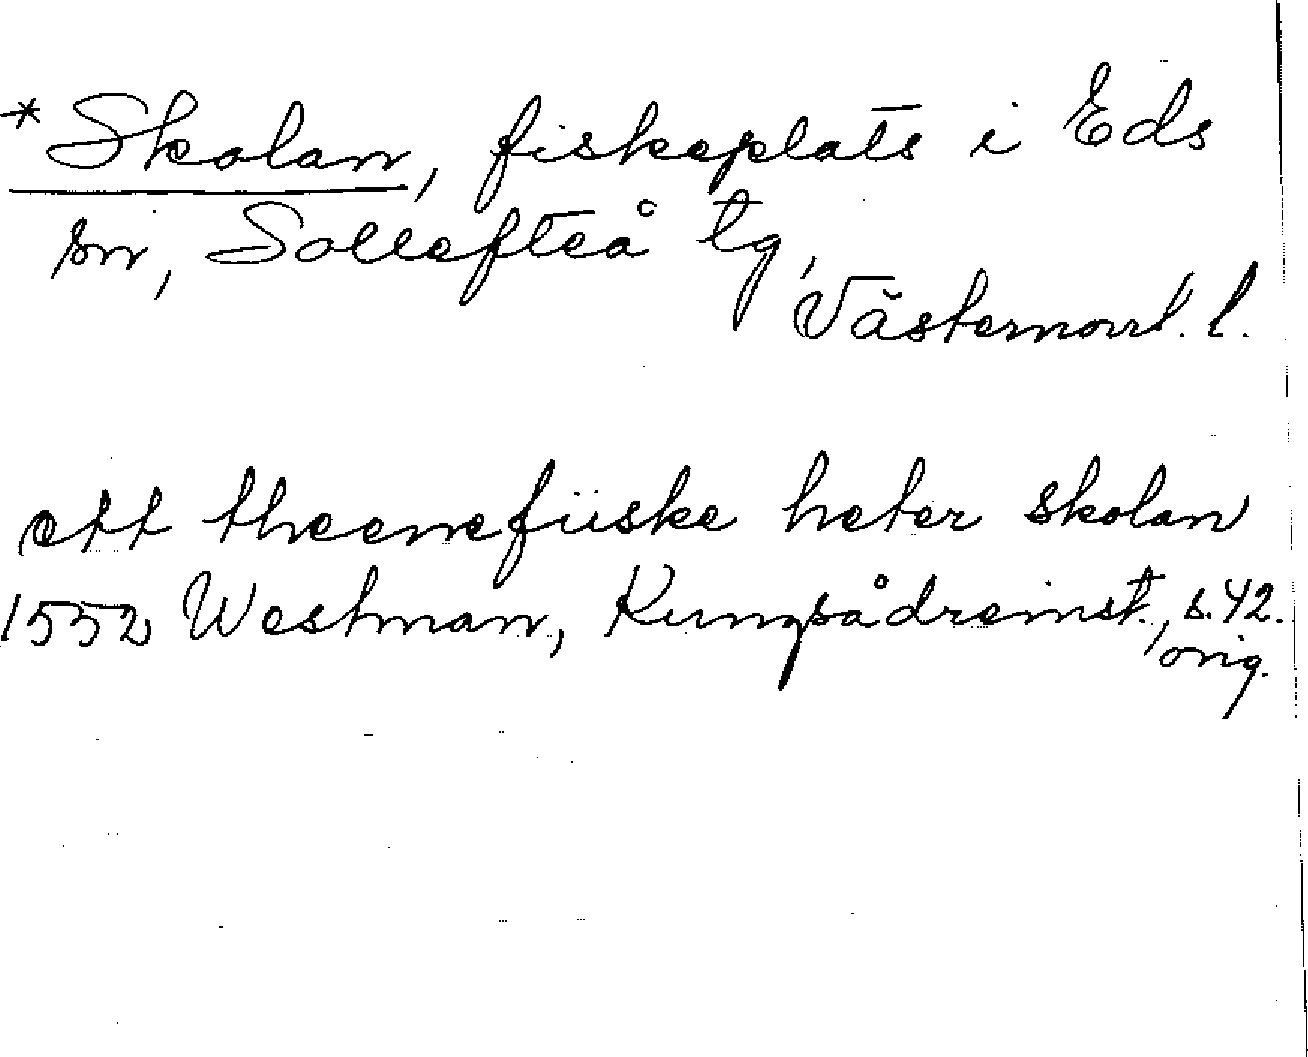 *Skolan, fiskeplats i Eds
sn, Sollefteå tg,
Västernorrl. l.
ett theenefiiske heter skolan
1552 Westman, Kungsådreinst., s. 42.
orig.